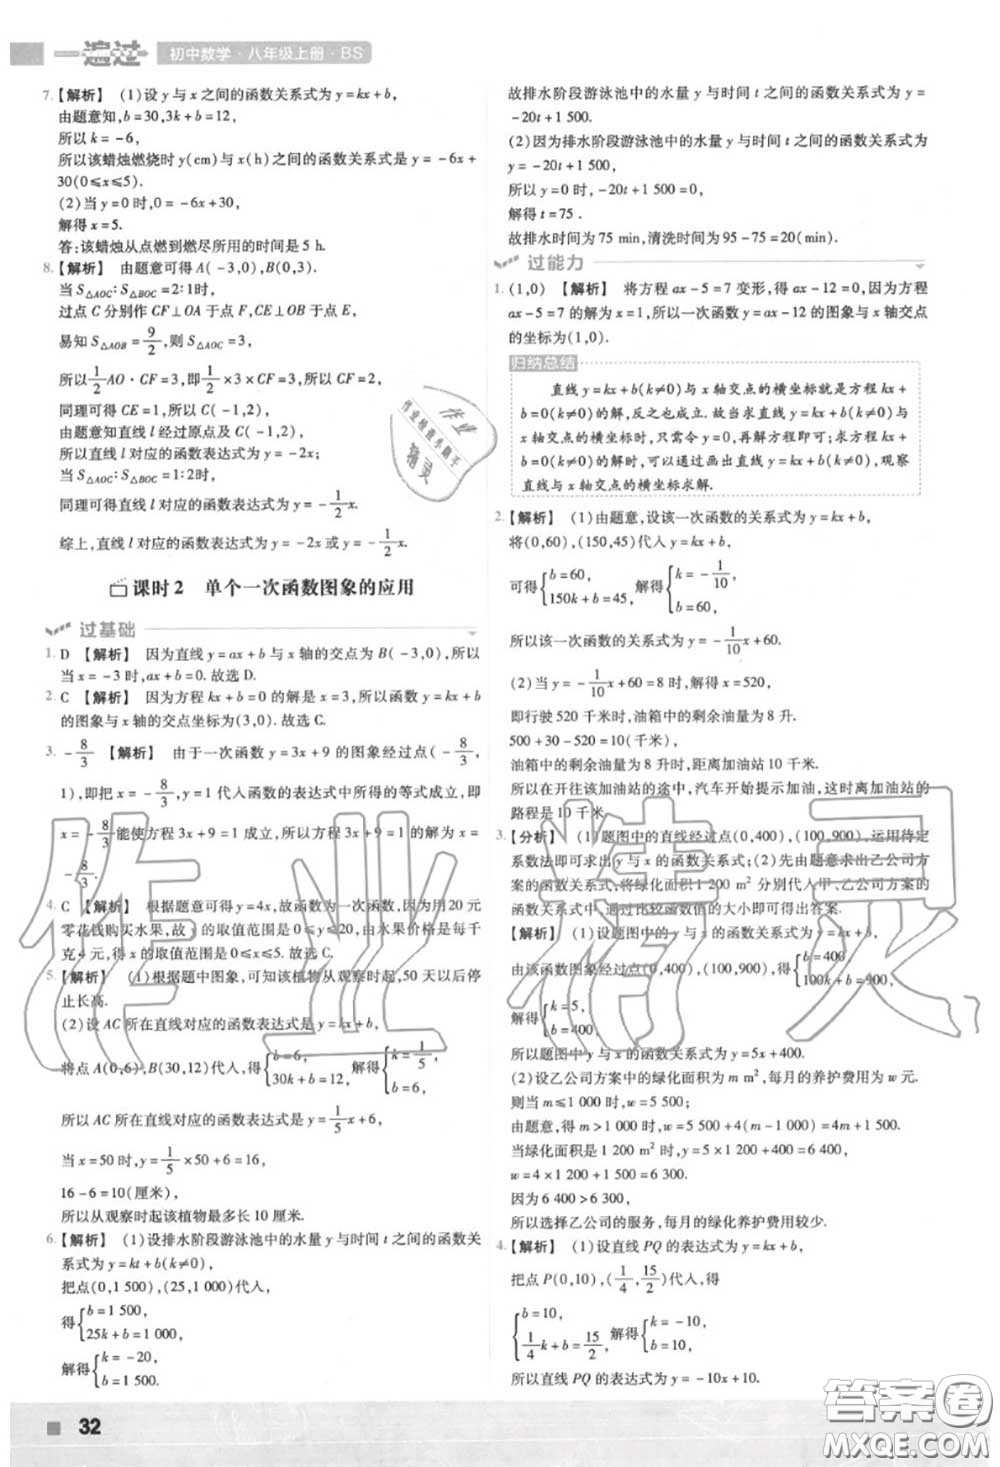 一遍过 初中数学·八年级上册·BS
7.【解析】 (1)设 y 与 x 之间的函数关系式为 y=kx+b,
由题意知,b=30,3k+b=12,
所以 k=-6,
所以该蜡烛燃烧时 y(cm)与 x(h)之间的函数关系式是 y=-6x+
30(0≤x≤5).
(2)当 y=0 时,0=-6x+30,
解得 x=5.
答:该蜡烛从点燃到燃尽所用的时间是 5 h.
8.【解析】 由题意可得 A(-3,0),B(0,3).
当 S△AOC:S△BOC=2:1时,
过点 C 分别作 CF⊥OA 于点 F,CE⊥OB 于点 E,
易知 S△AOB=9/2,则 S△AOC=3,
所以 1/2 AO·CF=3,即 1/2×3×CF=3,所以 CF=2.
同理可得 CE=1,所以 C(-1,2),
由题意知直线 l 经过原点及 C(-1,2),
所以直线 l 对应的函数表达式为 y=-2x;
当 S△AOC:S△BOC=1:2时,
同理可得直线 l 对应的函数表达式为 y=-1/2 x.
综上,直线 l 对应的函数表达式为 y=-2x 或 y=-1/2 x.
课时2 单个一次函数图象的应用
过基础
1. D 【解析】 因为直线 y=ax+b 与 x 轴的交点为 B(-3,0),所以
当 x=-3 时,ax+b=0.故选 D.
2. C 【解析】 因为方程 kx+b=0 的解是 x=3,所以函数 y=kx+b
的图象与 x 轴的交点坐标为(3,0).故选 C.
3. -8/3 【解析】 由于一次函数 y=3x+9 的图象经过点(-8/3,
1),即把 x=-8/3,y=1 代入函数的表达式中所得的等式成立,即
x=-8/3能使方程 3x+9=1 成立,所以方程 3x+9=1 的解为 x=
-8/3.
4. C 【解析】 根据题意可得 y=4x,故函数为一次函数,因为用 20 元
零花钱购买水果,故 y 的取值范围是 0≤y≤20.由水果价格是每千
克 4 元,得 x 的取值范围是 0≤x≤5.故选 C.
5.【解析】 (1)根据题中图象,可知该植物从观察时起,50 天以后停
止长高.
(2)设 AC 所在直线对应的函数表达式是 y=kx+b,
将点 A(0,6),B(30,12)代人,得{b=6, 30k+b=12, 解得{k=1/5, b=6,
所以 AC 所在直线对应的函数表达式是 y=1/5 x+6,
当 x=50 时,y=1/5×50+6=16,
16-6=10(厘米),
所以从观察时起该植物最多长 10 厘米.
6.【解析】 (1)设排水阶段游泳池中的水量 y 与时间 t 之间的函数关
系式为 y=kt+b(k≠0),
把点(0,1 500),(25,1 000)代人,
得{b=1 500, 25k+b=1 000,
解得{k=-20, b=1 500.
故排水阶段游泳池中的水量 y 与时间 t 之间的函数关系式为 y=
-20t+1 500.
(2)因为排水阶段游泳池中的水量 y 与时间 t 之间的函数关系式为
y=-20t+1 500,
所以 y=0 时,-20t+1 500=0,
解得 t=75.
故排水时间为 75 min,清洗时间为 95-75=20(min).
过能力
1. (1,0) 【解析】 将方程 ax-5=7 变形,得 ax-12=0,因为方程
ax-5=7 的解为 x=1,所以一次函数 y=ax-12 的图象与 x 轴交点
的坐标为(1,0).
归纳总结
直线 y=kx+b(k≠0)与 x 轴交点的横坐标就是方程 kx+
b=0(k≠0)的解,反之也成立.故当求直线 y=kx+b(k≠0)与
x 轴交点的横坐标时,只需令 y=0,再解方程即可;求方程 kx+
b=0(k≠0)的解时,可以通过画出直线 y=kx+b(k≠0),观察
直线与 x 轴交点的横坐标求解.
2.【解析】 (1)由题意,设该一次函数的关系式为 y=kx+b,
将(0,60),(150,45)代人 y=kx+b,
可得{b=60, 150k+b=45, 解得{k=-1/10, b=60,
所以该一次函数的关系式为 y=-1/10 x+60.
(2)当 y=-1/10 x+60=8 时,解得 x=520,
即行驶 520 千米时,油箱中的剩余油量为 8 升.
500+30-520=10(千米),
油箱中的剩余油量为 8 升时,距离加油站 10 千米.
所以在开往该加油站的途中,汽车开始提示加油,这时离加油站的
路程是 10 千米.
3.【分析】 (1)题图中的直线经过点(0,400),(100,900),运用待定
系数法即可求出 y 与 x 的函数关系式;(2)先由题意求出乙公司方案
的函数关系式,将绿化面积 1 200 m² 分别代人甲、乙公司方案的
函数关系式中,通过比较函数值的大小即可得出答案.
【解析】 (1)设题图中的 y 与 x 的函数关系式为 y=kx+b,
由该函数图象经过点(0,400),(100,900),得{b=400, 100k+b=900,
解得{k=5, b=400,
所以题图中 y 与 x 的函数关系式为 y=5x+400.
(2)设乙公司方案中的绿化面积为 m m²,每月的养护费用为 w 元.
则当 m≤1 000 时,w=5 500;
由题意,得当 m>1 000 时,w=5 500+4(m-1 000)=4m+1 500.
当绿化面积是 1 200 m² 时,y=5×1 200+400=6 400,
w=4×1 200+1 500=6 300.
因为 6 400>6 300,
所以选择乙公司的服务,每月的绿化养护费用较少.
4.【解析】 (1)设直线 PQ 的表达式为 y=kx+b,
把点 P(0,10),(1/4,15/2)代人,得
{b=10, 1/4 k+b=15/2, 解得{k=-10, b=10,
所以直线 PQ 的表达式为 y=-10x+10.
32
作业精灵
答案圈
MXQE.COM